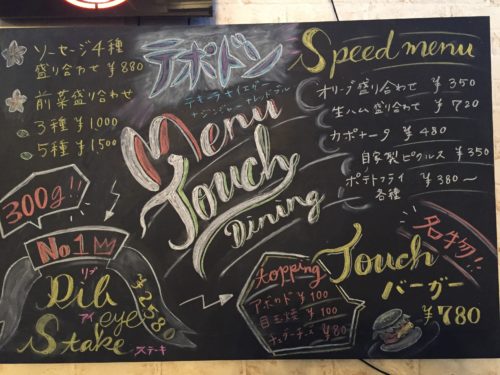 ソーセージ4種
盛り合わせ ¥880
前菜盛り合わせ
3種 ¥1,000
5種 ¥1,500
テポドン
Menu
Touch
Dining
Speed menu
オリーブ盛り合わせ ¥350
生ハム盛り合わせ ¥720
カポナータ ¥480
自家製ピクルス ¥350
ポテトフライ ¥380〜
各種
300g!!
No1
リブ
Rib
アイ
eye
Stake
ステーキ
¥2580
topping
アボカド ¥100
目玉焼 ¥100
チェダーチーズ ¥80
名物!!
Touch
バーガー
¥780